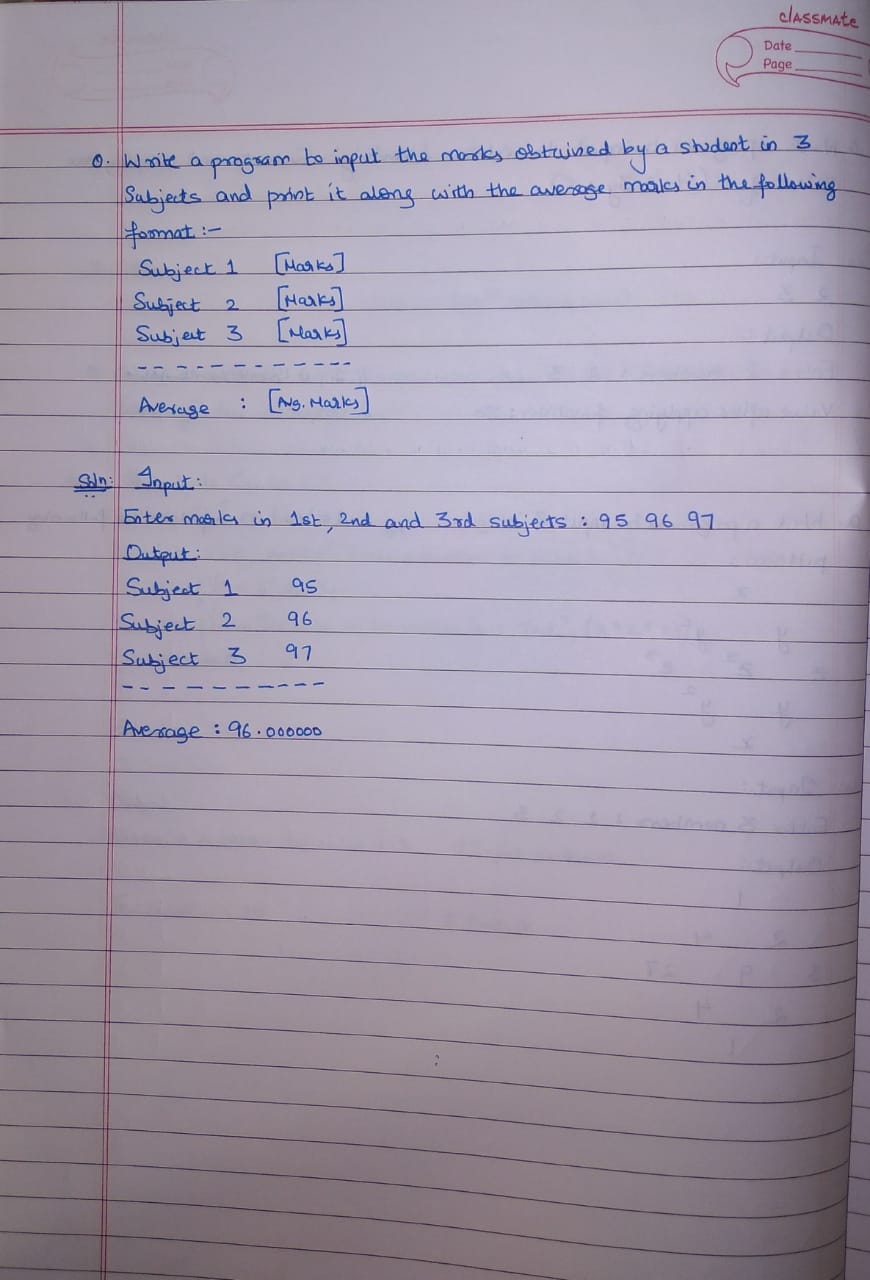 classmate
Date
Page
Q. Write a program to input the marks obtained by a student in 3
Subjects and print it along with the average marks in the following
format :-
Subject 1 [Marks]
Subject 2 [Marks]
Subject 3 [Marks]
------------
Average : [Avg. Marks]
Soln: Input:
Enter marks in 1st, 2nd and 3rd subjects : 95 96 97
Output:
Subject 1 95
Subject 2 96
Subject 3 97
----------
Average : 96.000000